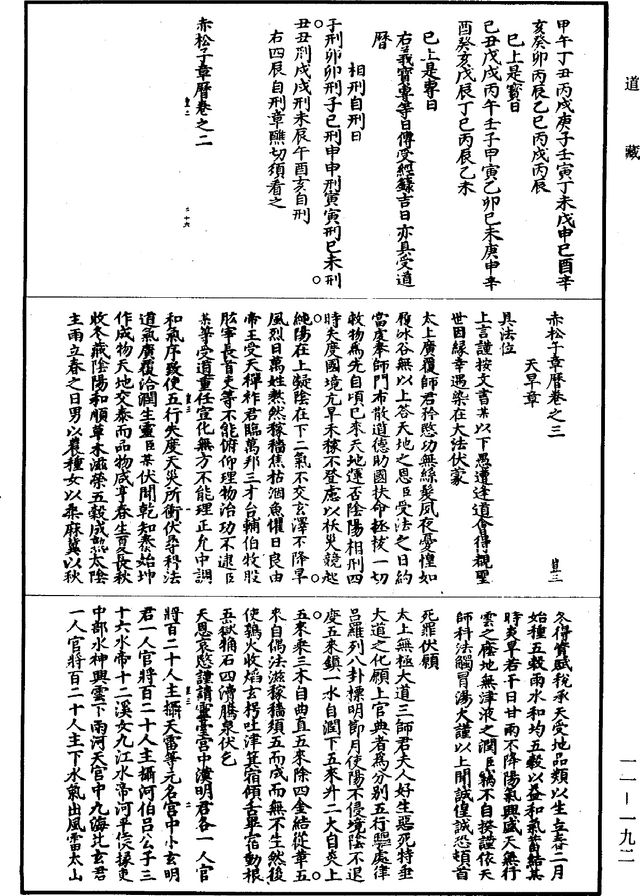 道藏
甲午丁丑丙戌庚子壬寅丁未戊申己酉辛
亥癸卯丙辰乙巳丙戌丙辰
已上是寳日
己丑戊戌丙午壬子甲寅乙卯己未庚申辛
酉癸亥戊辰丁巳丙辰乙未
已上是専日
右義寳專等日傳受經籙吉日亦具受道
曆
相刑自刑日
子刑卯卯刑子巳刑申申刑寅寅刑巳未刑
丑丑刑戌戌刑未辰午酉亥自刑
右四辰自刑章醮切須看之
赤松子章曆卷之二
赤松子章曆卷之三
天旱章
具法位
上言謹按文書某以下愚遭逢道會得覩聖
世因緣幸遇染在大法伏蒙
太上廣覆師君矜愍功無絲髮夙夜憂惶如
履冰谷無以上答天地之恩臣受法之日約
當虔奉師門布散道德助國扶命拯拔一切
救物為先自頃已來天地運否陰陽相刑四
時失度國境亢旱禾稼不登慮以妖災競起
純陽在上凝陰在下二氣不交玄澤不降旱
風烈日萬姓熬然稼穡焦枯涸魚懼日良由
帝王受天禪祚君臨萬邦三才台輔伯牧股
肱宰長首吏等不能俯仰理物治功不逮臣
某等受道重任宣化無方不能理正允中調
和氣序致使五行失度天災所衝伏尋科法
道氣廣覆洽潤生靈臣某伏聞乾知泰始坤
作成物天地交泰而品物咸亨春生夏長秋
收冬藏陰陽和順草木滋榮五穀成熟太陰
主雨立春之日男以農種女以桑麻冀以秋
冬得償賦稅承天受地品類以生立春二月
始種五穀雨水和均五穀以益和氣蓄結某
時炎旱若干日甘雨不降陽氣興盛天無行
雲之應地無津液之潤臣輙不自揆謹依天
師科法觸冒湯火謹以上聞誠惶誠恐頓首
死罪伏願
太上無極大道三師君夫人好生惡死特垂
大道之化願上官典者為分別五行驅處律
呂羅列八卦標明節月使陽不侵境陰不退
度五來鎮一水自潤下五來升二火自炎上
五來乘三木自曲直五來除四金結從革五
來自偶法滋稼穡須五而成而無不生然後
使鶉火收焰玄枵吐津箕宿傾舌畢宿動根
五嶽桷石四瀆騰泉伏乞
天恩哀愍謹請靈臺宮中漢明君各一人官
將百二十人主攝天雷等元名宮中小玄明
君一人官將百二十人主攝河伯呂公子三
十六水帝十二溪女九江水帝河平侯掾吏
中部水神興雲下雨河天宮中九海北玄君
一人官將百二十人主下水氣出風雷太山
一一-一九二